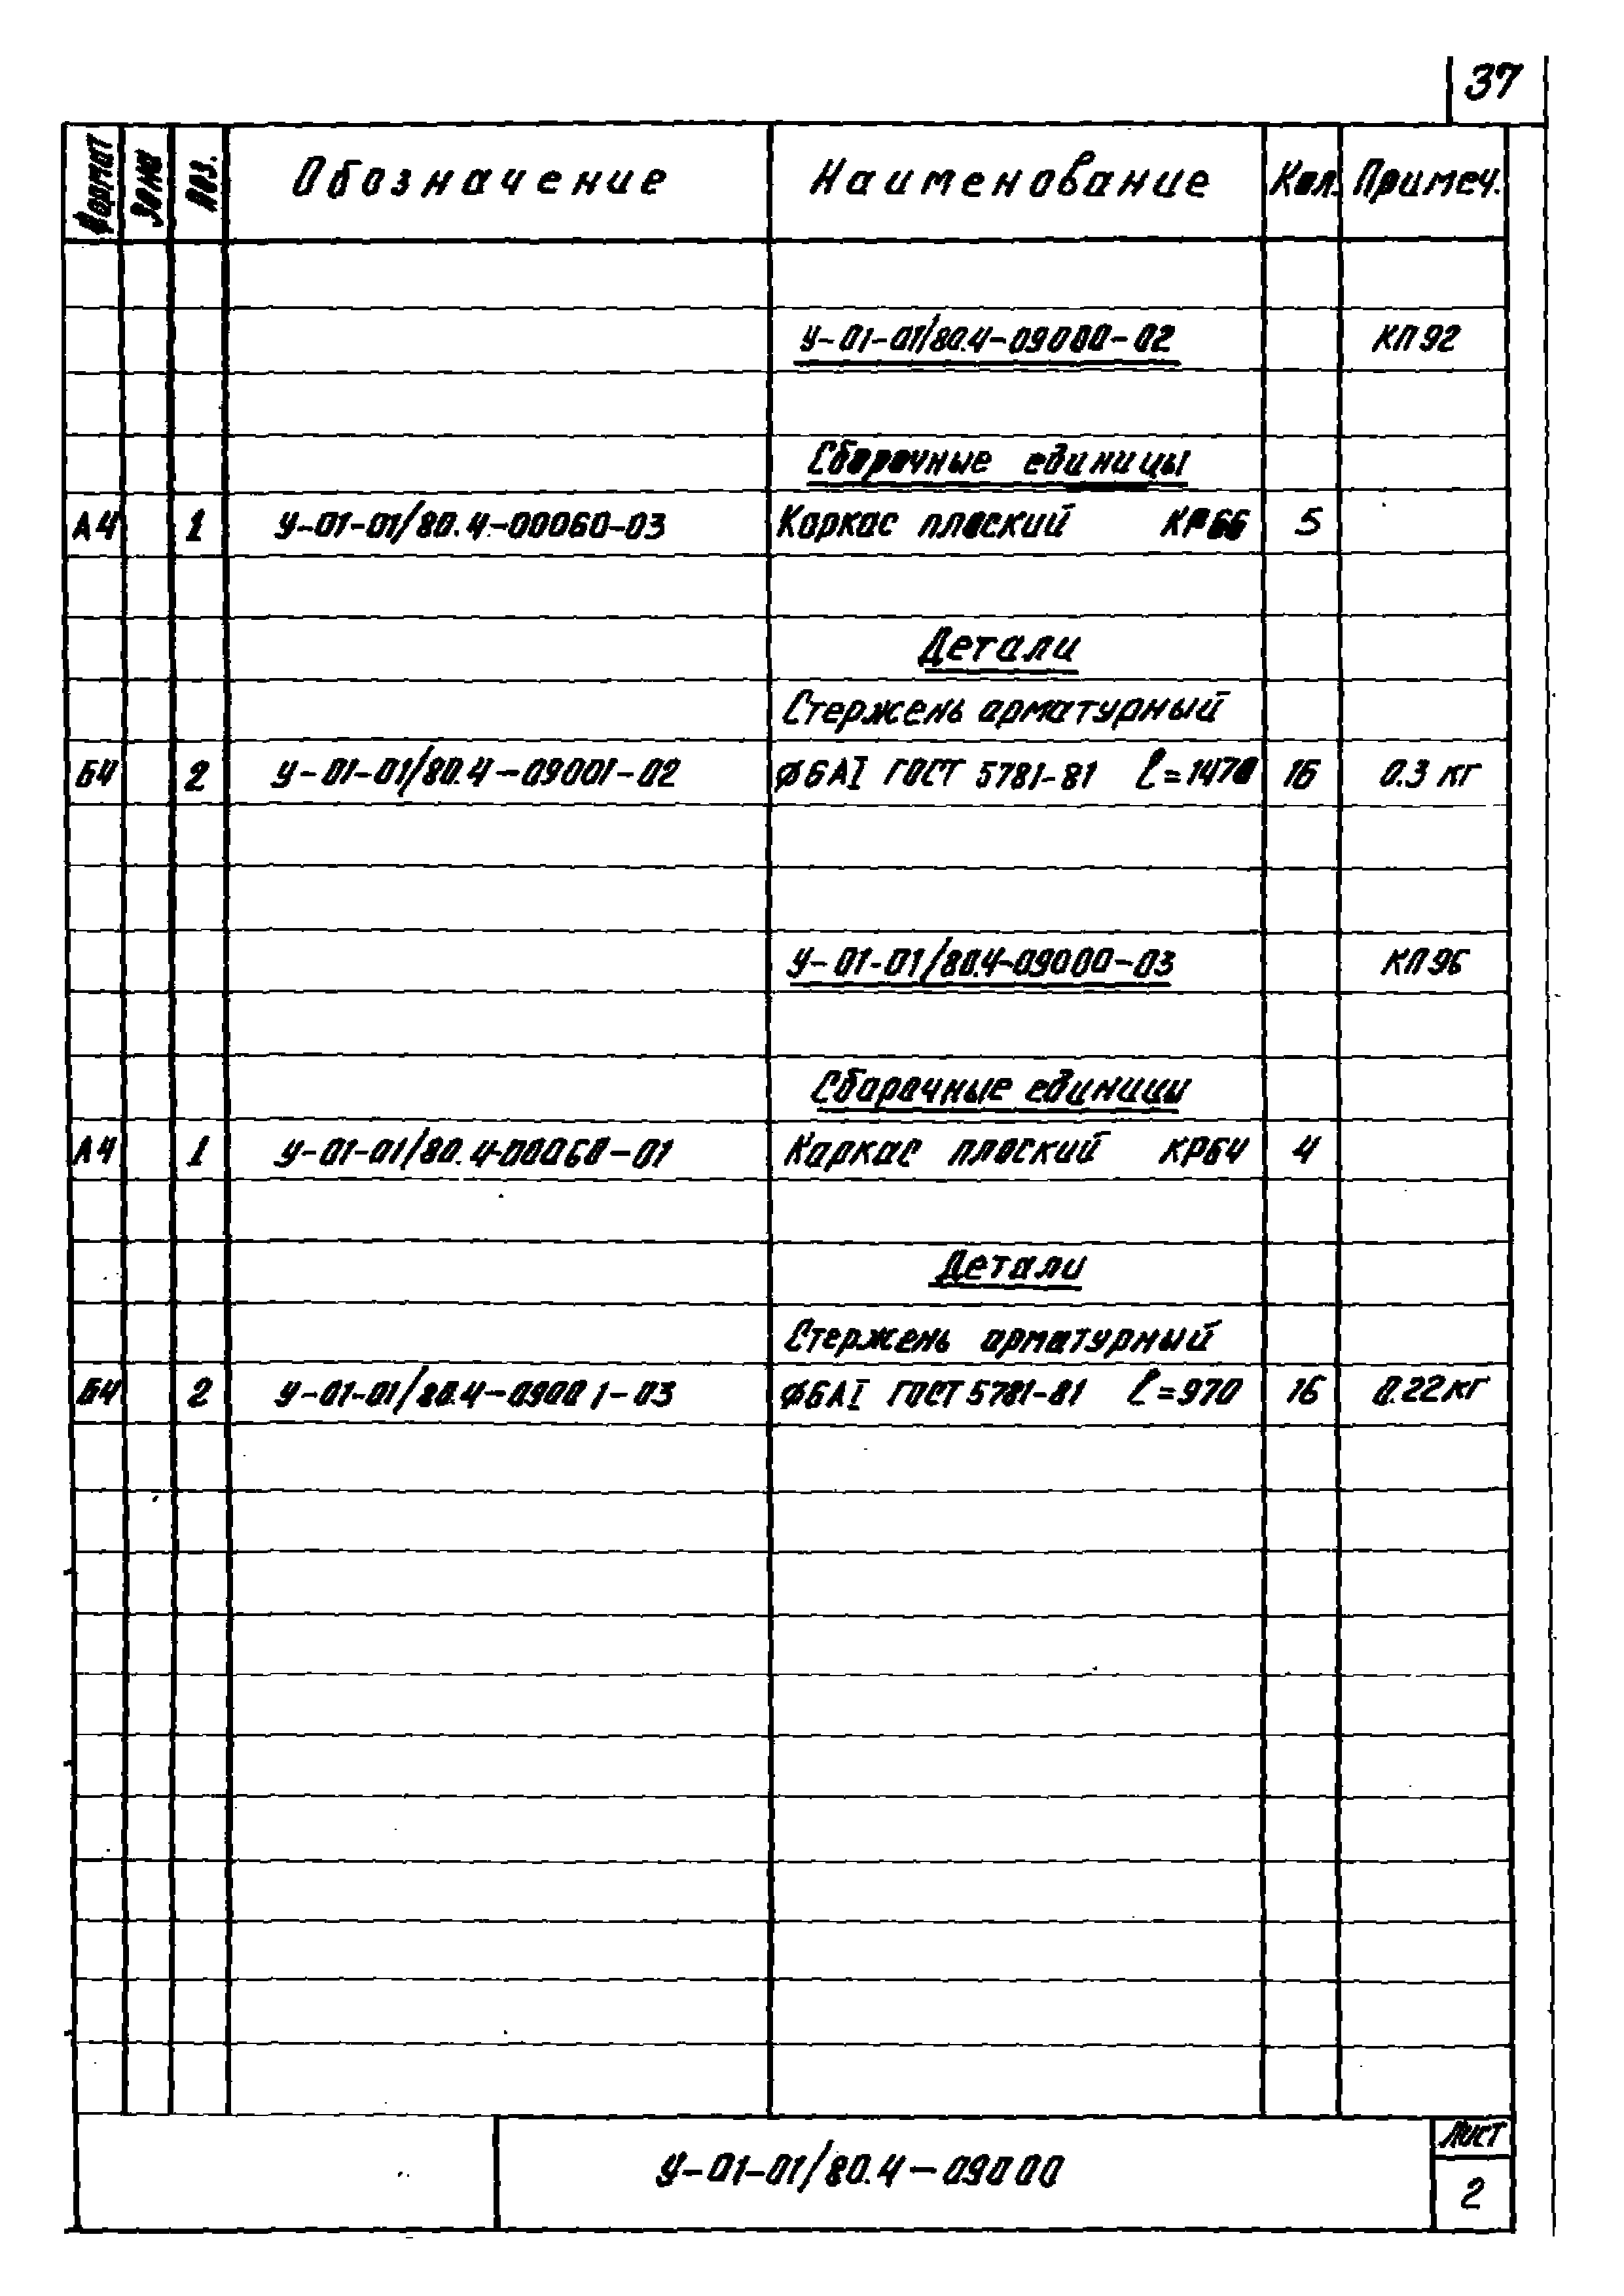 37
Формат Зона Поз. Обозначение Наименование Кол. Примеч.
У-01-01/80.4-09000-02 КП92
Сборочные единицы
А4 1 У-01-01/80.4-00060-03 Каркас плоский КР66 5
Детали
Стержень арматурный
Б4 2 У-01-01/80.4-09001-02 ∅6АI ГОСТ 5781-81 ℓ=1470 16 0.3 кг
У-01-01/80.4-09000-03 КП96
Сборочные единицы
А4 1 У-01-01/80.4-00060-01 Каркас плоский КР64 4
Детали
Стержень арматурный
Б4 2 У-01-01/80.4-09001-03 ∅6АI ГОСТ 5781-81 ℓ=970 16 0.22кг
У-01-01/80.4-09000
Лист
2